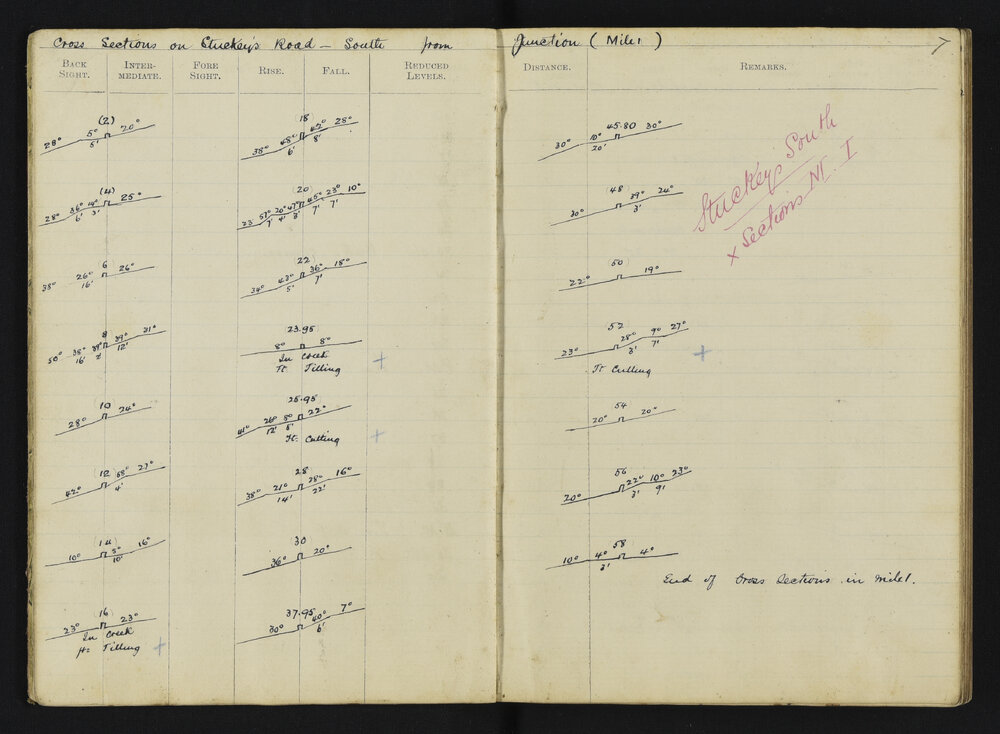 Cross Sections on Stuckey's Road – South from Junction (Mile 1)
7
BACK SIGHT. INTERMEDIATE. FORE SIGHT. RISE. FALL. REDUCED LEVELS. DISTANCE. REMARKS.
(2)
28° 5° 20°
5'
(4)
28° 36° 14° 25°
6' 3'
6
38° 26° 26°
16'
8
50° 38° 39° 31°
16' 12'
10
28° 24°
(12)
42° 58° 27°
4'
(14)
10° 5° 16°
10'
16
23° 23°
In Creek
ft: Filling
18
38° 48° 42° 28°
6' 8'
(20)
23 57° 20° 47° 45° 23° 10°
7' 4' 3' 7' 7'
22
34° 43° 36° 18°
5' 7'
23.95
8° 8°
In Creek
Ft Filling
25.95
41° 26° 8° 22°
12' 6'
Ft: Cutting
28
38° 21° 28° 16°
14' 22'
30
36° 20°
37.95
30° 40° 7°
6'
45.80
30° 10° 30°
20'
48
30° 39° 24°
3'
50
22° 19°
52
23° 28° 9° 27°
3' 7'
Ft Cutting
54
20° 20°
56
20° 22° 10° 23°
3' 9'
58
10° 4° 4°
3'
End of Cross Sections in mile 1.
Stuckeys South
x Sections M. I